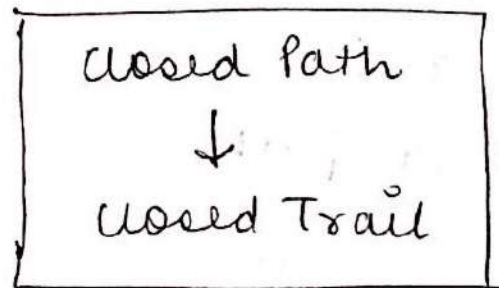 Closed Path
↓
Closed Trail